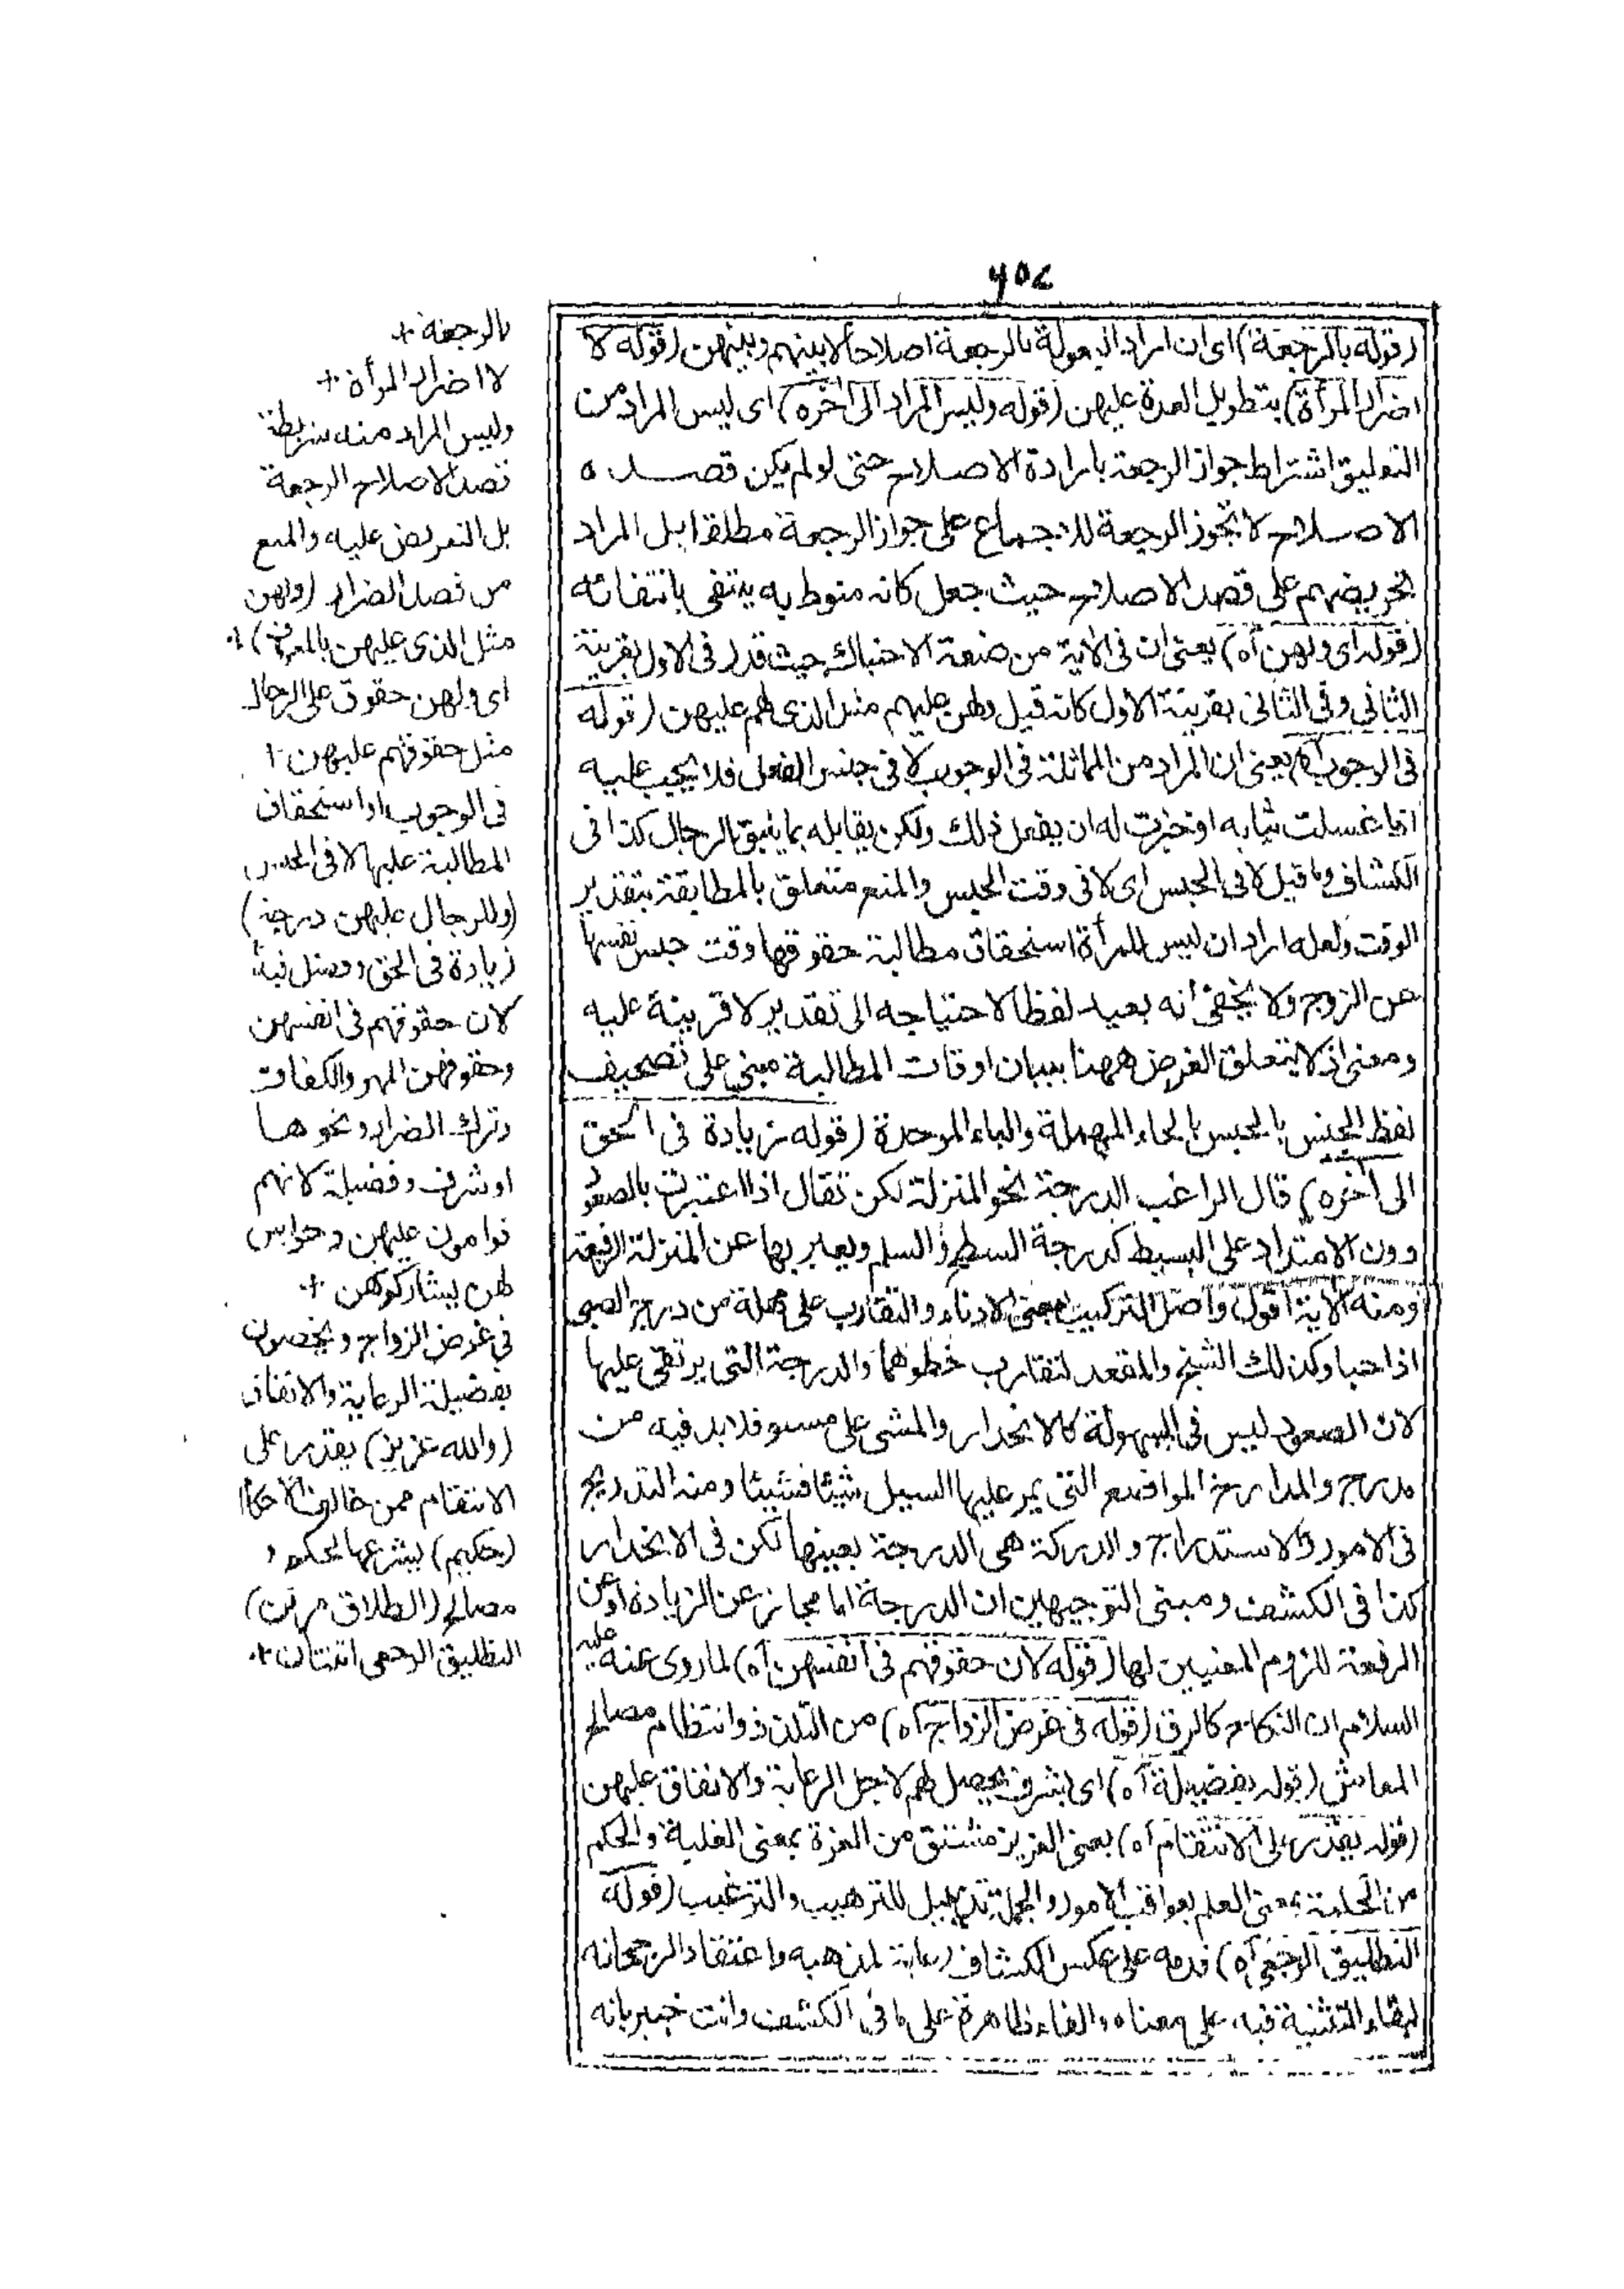 ٦٥٤
(قوله بالرجعة) اى ان اراد البعولة بالرجعة اصلاحا لا بينهم وبينهن (قوله لا
اضرار المرأة) بتطويل العدة عليهن (قوله وليس المراد الى آخره) اى ليس المراد من
التعليق اشتراط جواز الرجعة بارادة الاصلاح حتى لو لم يكن قصده
الاصلاح لا تجوز الرجعة للاجماع على جواز الرجعة مطلقا بل المراد
تحريضهم على قصد الاصلاح حيث جعل كانه منوط به ينتفى بانتفائه
(قوله اى ولهن آه) يعنى ان فى الآية من صنعة الاحتباك حيث قدر فى الاول بقرينة
الثانى وفى الثانى بقرينة الاول كانه قيل ولهن عليهم مثل الذى لهم عليهن (قوله
فى الوجوب آه) يعنى ان المراد من المماثلة فى الوجوب لا فى جنس الفعل فلا يجب عليه
اذا غسلت ثيابه او خبزت له ان يفعل ذلك ولكن يقابله بما يليق بالرجال كذا فى
الكشاف وما قيل لا فى الحبس اى لا فى وقت الحبس والمنع متعلق بالمطابقة بتقدير
الوقت ولعله اراد ان ليس للمرأة استحقاق مطالبة حقوقها وقت حبس نفسها
عن الزوج ولا يخفى انه بعيد لفظا لاحتياجه الى تقدير لا قرينة عليه
ومعنى اذ لا يتعلق الغرض ههنا ببيان اوقات المطالبة مبنى على تصحيف
لفظ الجنس بالحبس بالحاء المهملة والباء الموحدة (قوله زيادة فى الحق
الى آخره) قال الراغب الدرجة نحو المنزلة لكن تقال اذا اعتبرت بالصعود
دون الامتداد على البسيط كدرجة السطح والسلم ويعبر بها عن المنزلة الرفيعة
ومنه الآية اقول واصل التركيب بمعنى الادناء والتقارب على مهلة من درج الصبى
اذا حبا وكذلك الشيخ والمقعد لتقارب خطوهما والدرجة التى يرتقى عليها
لان الصعود ليس فى السهولة كالانحدار والمشى على مستو فلا بد فيه من
مدرج والمدارج المواضع التى يمر عليها السيل شيئا فشيئا ومنه التدريج
فى الامور والاستدراج والدركة هى الدرجة بعينها لكن فى الانحدار
كذا فى الكشف ومبنى التوجيهين ان الدرجة اما مجاز عن الزيادة او عن
الرفعة للزوم المعنيين لها (قوله لان حقوقهم فى انفسهن آه) لما روى عنه عليه
السلام ان النكاح كالرق (قوله فى غرض الزواج آه) من التلذذ وانتظام مصالح
المعاش (قوله بفضيلة آه) اى بشرف يحصل لهم لاجل الرعاية والانفاق عليهن
(قوله يقدر على الانتقام آه) يعنى العزيز مشتق من العزة بمعنى الغلبة والحكم
من الحكمة بمعنى العلم بعواقب الامور والجملة تذييل للترهيب والترغيب (قوله
التطليق الرجعى آه) قدمه على عكس الكشاف رعاية لمذهبه واعتقادا لرجحانه
لبقاء التثنية فيه على معناه والفاء ظاهرة على ما فى الكشف وانت خبير بانه
بالرجعة +
لا اضرار المرأة +
وليس المراد منه شريطة
قصد الاصلاح الرجعة
بل التعريض عليه والمنع
من قصد الضرار (ولهن
مثل الذى عليهن بالمعروف) +
اى ولهن حقوق على الرجال
مثل حقوقهم عليهن +
فى الوجوب او استحقاق
المطالبة عليها لا فى الجنس
(وللرجال عليهن درجة)
زيادة فى الحق وفضل فيه
لان حقوقهم فى انفسهن
وحقوقهن المهر والكفاف
وترك الضرار ونحوها
او شرف وفضيلة لانهم
قوامون عليهن وحراس
لهن يشاركوهن +
فى غرض الزواج ويخصون
بفضيلة الرعاية والانفاق
(والله عزيز) يقدر على
الانتقام ممن خالف الاحكام
(حكيم) يشرعها لحكم و
مصالح (الطلاق مرتن)
التطليق الرجعى اثنتان +